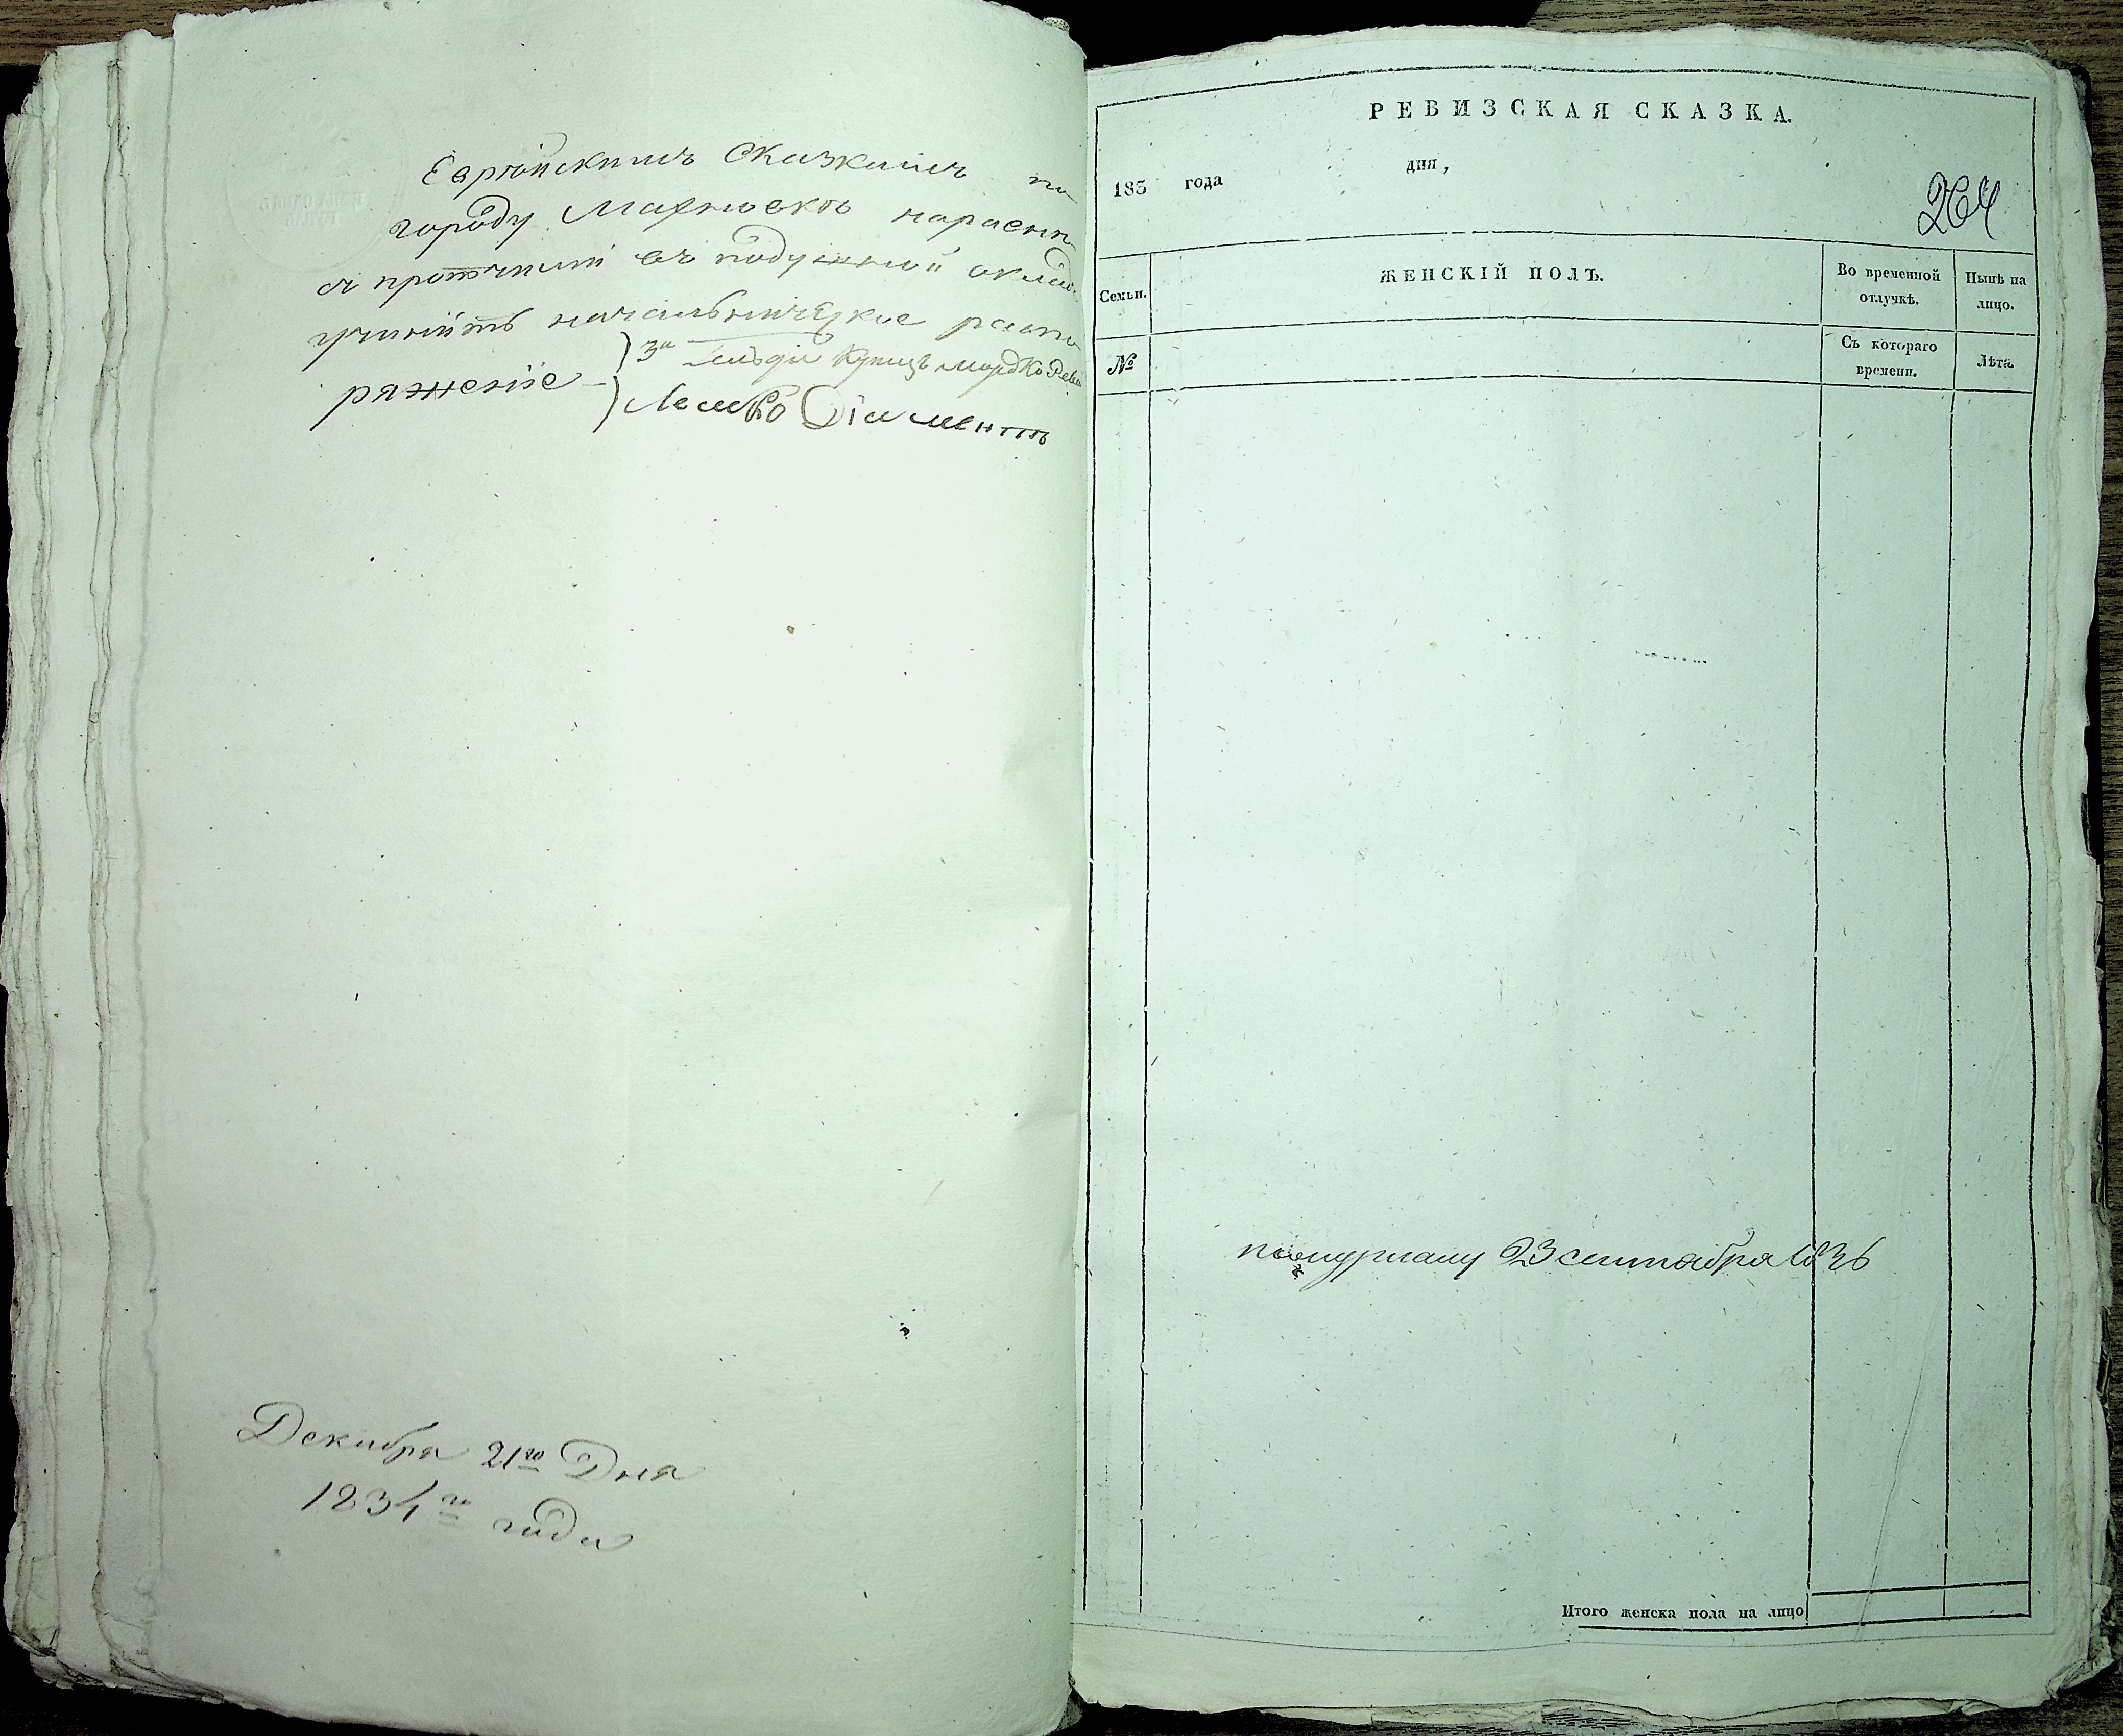 Еврейскимъ Сказкамъ по
городу Махновкѣ
съ протчими въ подушной окладъ
учинить начальническое распо
ряжение
3й Гильдіи Купецъ Мордко
Лейбо Діаментъ
Декабря 21го Дня
1834го года
РЕВИЗСКАЯ СКАЗКА.
183 года дня,
264
Семьи.
ЖЕНСКІЙ ПОЛЪ.
Во временной отлучкѣ.
Нынѣ на лицо.
№
Съ котораго времени.
Лѣта.
23 сентабря 1836
Итого женска пола на лицо